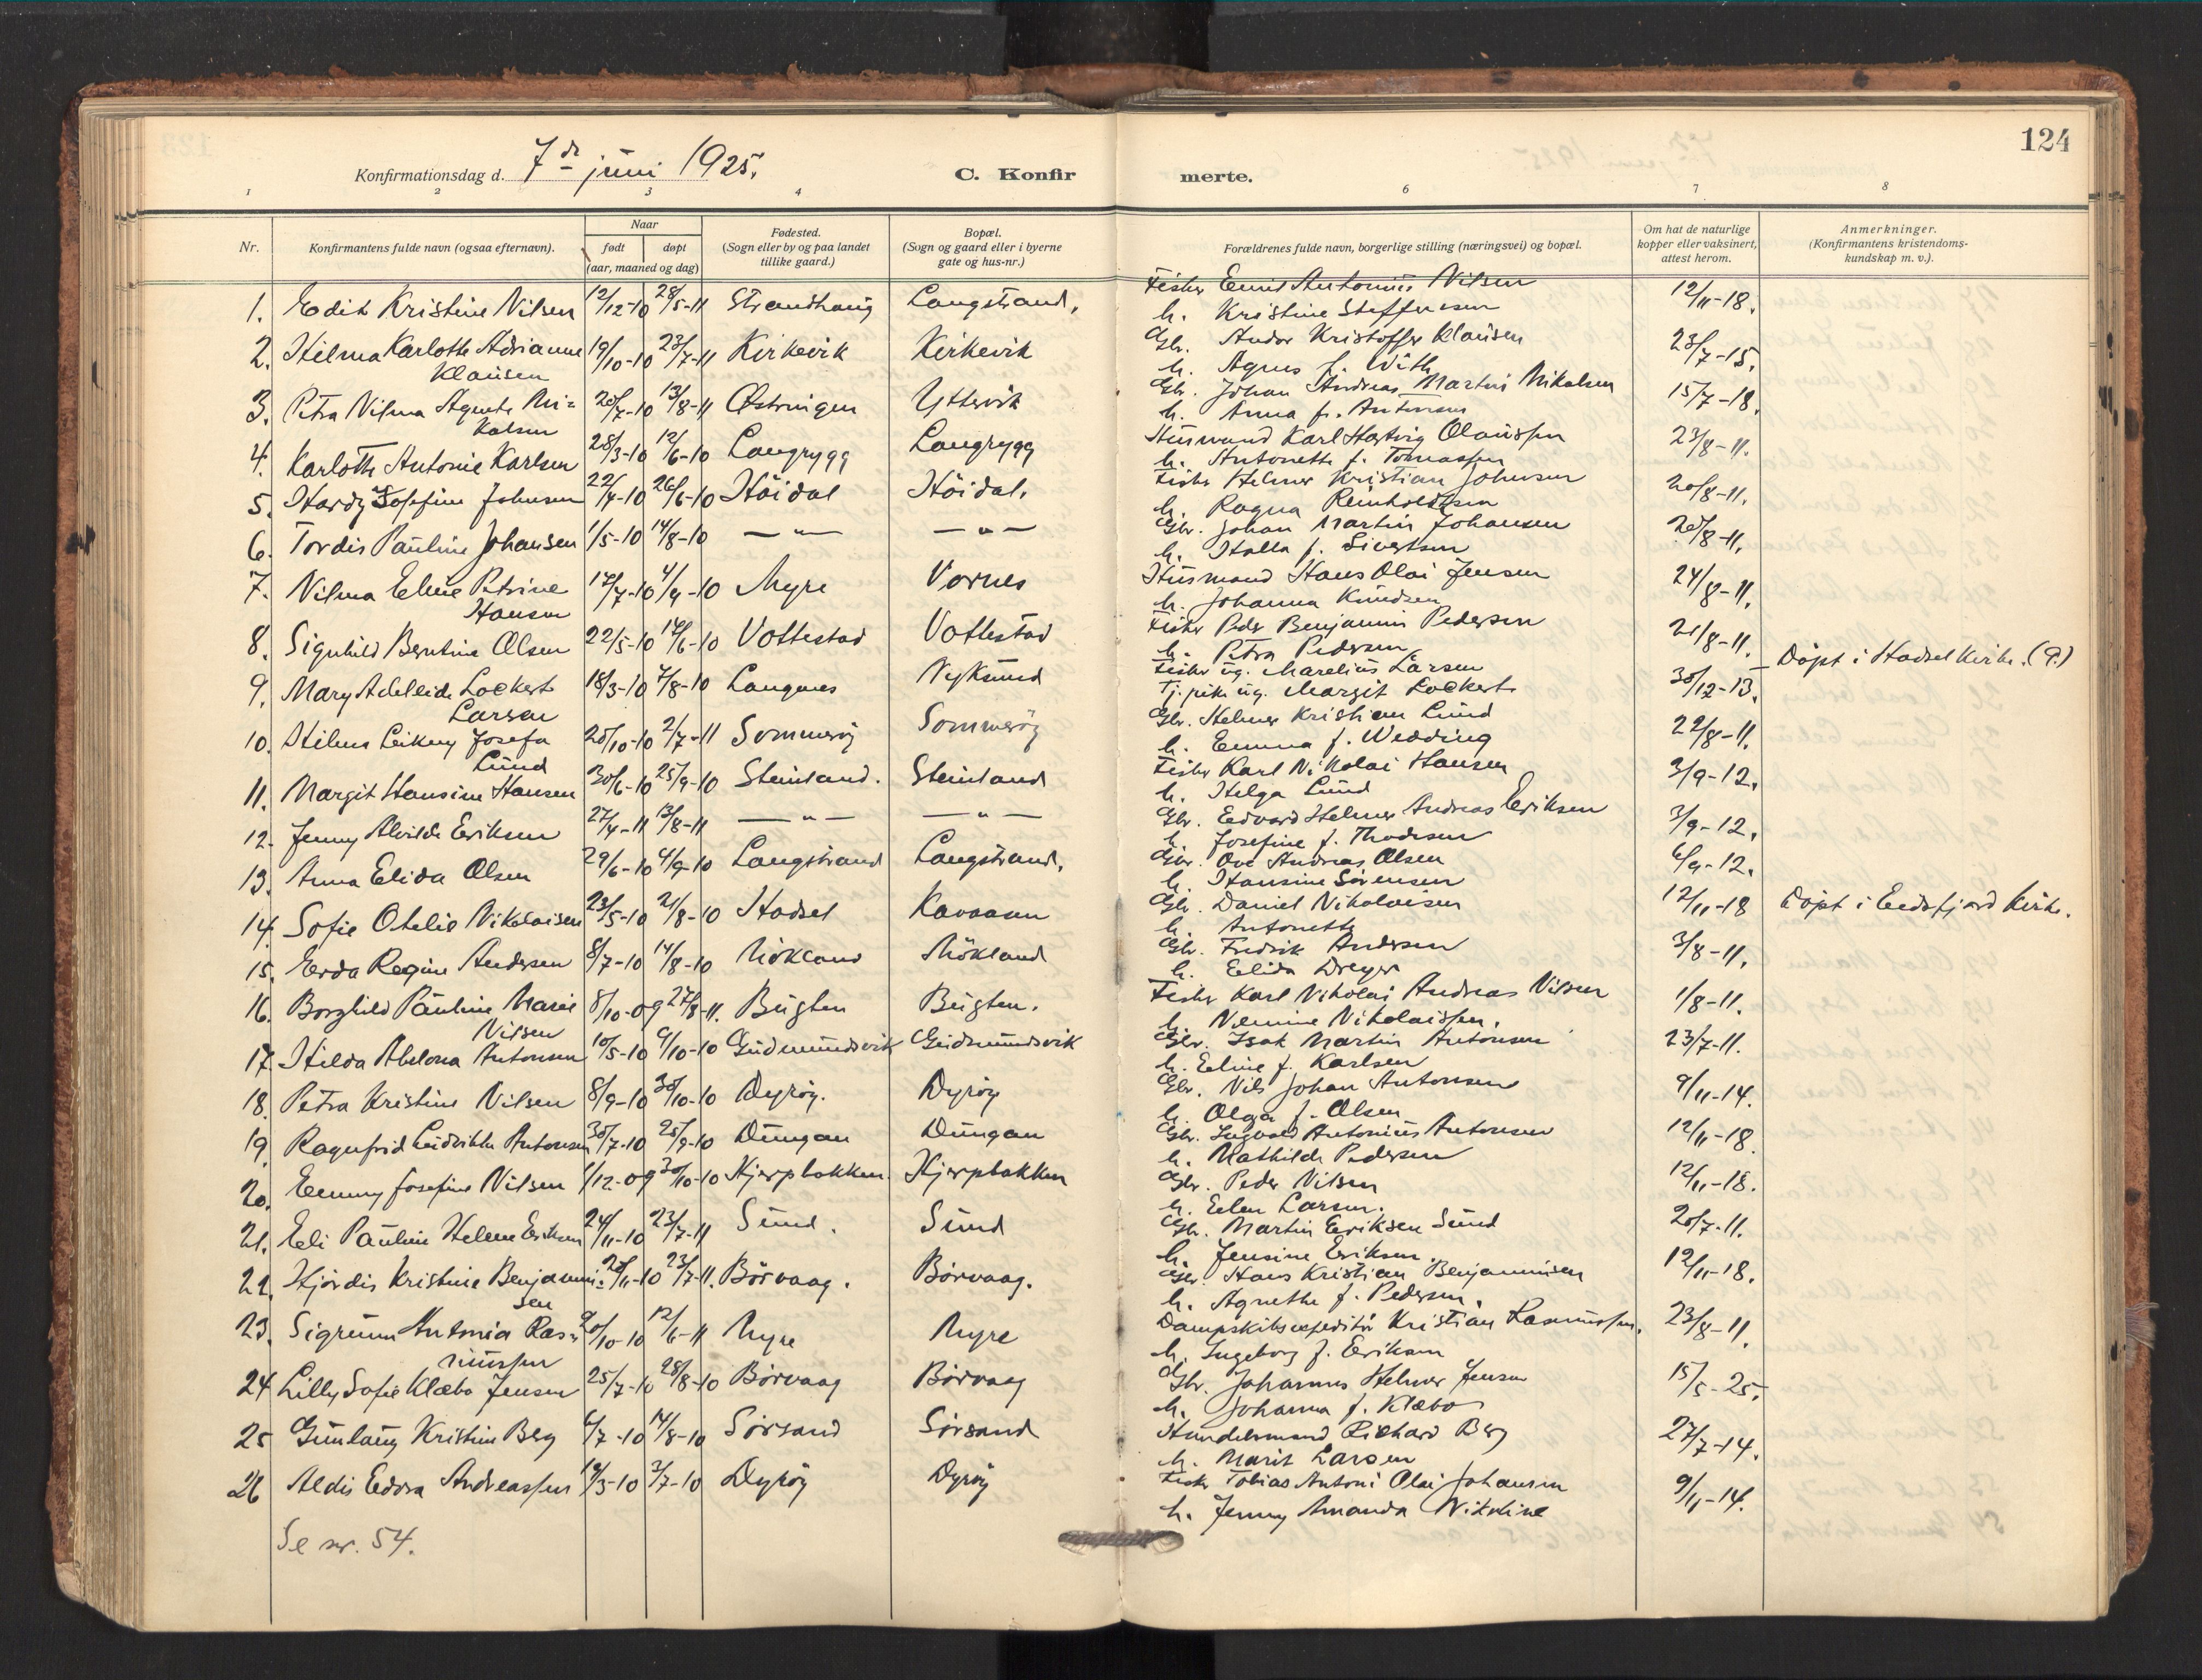 124
Konfirmationsdag d. 7de juni 1925.
C. Konfir
merte.
1 2 3 4 6 7 8
Nr.
Konfirmantens fulde navn (ogsaa efternavn).
Naar
født
døpt
(aar, maaned og dag)
Fødested.
(Sogn eller by og paa landet
tillike gaard.)
Bopæl.
(Sogn og gaard eller i byerne
gate og hus-nr.)
Forældrenes fulde navn, borgerlige stilling (næringsvei) og bopæl.
Om hat de naturlige
kopper eller vaksinert,
attest herom.
Anmerkninger.
(Konfirmantens kristendoms-
kundskap m. v.).
1. Edit Kristine Nilsen 12/12-10 28/5-11 Strandhaug Langstrand. Fisker Antonius Nilsen 12/11-18.
h. Kristine Steffensen
2. Hilma Karlotte Adrianne 19/10-10 23/7-11 Kirkevik Kirkevik Gbr. Andor Kristoffer Klausen 23/7-15.
Klausen h. Agnes f. With
3. Petra Vilma Agnete Ni= 20/7-10 13/8-11 Østringen Yttervik Gbr. Johan Andreas Martin Nikalsen 15/7-18.
kalsen h. Anna f. Antonsen
4. Karlotte Antonie Karlsen 28/3-10 12/6-10 Langrygg Langrygg Husmand Karl Hartvig Olaussen 23/8-11.
h. Antonette f. Tomassen
5. Hardy Josefine Johnsen 22/4-10 26/6-10 Høidal Høidal. Fisker Helmer Kristian Johnsen 20/8-11.
h. Ragna Reinholdtsen
6. Tordis Pauline Johansen 1/5-10 14/8-10 — " — — " — Gbr. Johan Martin Johansen 20/8-11.
h. Halla f. Sivertsen
7. Vilma Eline Petrine 17/7-10 4/9-10 Myre Vornes Husmand Hans Olai Jensen 24/8-11.
Hansen h. Johanna Knudsen
8. Signhild Berntine Olsen 22/5-10 19/6-10 Vottestad Vottestad Fisker Peder Benjamin Pedersen 21/8-11.
h. Petra Pedersen
9. Mary Adelleide Lockert 18/3-10 7/8-10 Langnes Nyksund Fisker ug. Marelius Larsen 30/12-13. Døpt i Hadsel kirke. (9.)
Larsen Tj. pike ug. Margit Lockert
10. Hilmu Leikny Josefa 20/10-10 2/7-11 Sommerøy Sommerøy Gbr. Helmer Kristian Lund 22/8-11.
Lund h. Emma f. Wedding
11. Margit Hansine Hansen 30/6-10 25/9-10 Steinland. Steinland Fisker Karl Nikolai Hansen 3/9-12.
h. Helga Lund
12. Jenny Alvilde Eriksen 27/4-11 13/8-11 — " — — " — Gbr. Edvard Helmer Andreas Eriksen 3/9-12.
h. Josefine f. Thodesen
13. Anna Elida Olsen 29/6-10 4/9-10 Langstrand Langstrand. Gbr. Ove Andreas Olsen 6/9-12.
h. Hansine Sørensen
14. Sofie Otelie Nikolaisen 23/5-10 21/8-10 Hadsel Kavaasen Gbr. Daniel Nikolaisen 12/11-18 Døpt i Eidsfjord kirke.
h. Antonette
15. Erda Regine Andersen 8/7-10 14/8-10 Møkland Møkland Gbr. Fredrik Andersen 3/8-11.
h. Elida Dreyer
16. Borghild Pauline Marie 8/10-09 27/8-11. Bugten Bugten. Fisker Karl Nikolai Andreas Nilsen 1/8-11.
Nilsen h. Nikolaissen.
17. Hilda Abelona Antonsen 10/5-10 9/10-10 Gudmundsvik Gudmundsvik Gbr. Isak Martin Antonsen 23/7-11.
h. Eline f. Karlsen
18. Petra Kristine Nilsen 8/9-10 30/10-10 Dyrøy. Dyrøy Gbr. Nils Johan Antonsen 9/11-14.
h. Olga f. Olsen
19. Ragnfrid Ludvikke Antonsen 30/7-10 25/9-10 Dungan Dungan Gbr. Ingvald Antonius Antonsen 12/11-18.
h. Mathilde Pedersen
20. Emmy Josefine Nilsen 1/12-09 30/10-10 Hjerpbakken. Hjerpbakken Gbr. Peder Nilsen 12/11-18.
h. Elen Larsen.
21. Eli Pauline Helene Eriksen 24/11-10 23/7-11 Sund. Sund Gbr. Martin Eriksen Sund 20/7-11.
h. Jensine Eriksen.
22. Hjørdis Kristine Benjamin= 20/11-10 23/7-11. Børvaag. Børvaag. Gbr. Hans Kristian Benjaminsen 12/11-18.
sen h. Agnethe f. Pedersen.
23. Sigrunn Antonia Ras= 20/10-10 12/6-11 Myre Myre Dampskibsexpeditør Kristian Rasmussen. 23/8-11.
mussen h. Ingeborg f. Eriksen
24 Lilly Sofie Klæbo Jensen 25/7-10 28/8-10 Børvaag Børvaag Gbr. Johannes Helmer Jensen 15/5-25.
h. Johanna f. Klæbo
25 Gunlaug Kristine Berg 6/7-10 14/8-10 Sørsand Sørsand Handelsmand Richard Berg 27/7-14.
h. Marit Larsen
26 Aldis Edora Andreassen 19/3-10 3/7-10 Dyrøy Dyrøy Fisker Tobias Antoni Olai Johansen 9/11-14.
h. Jenny Amanda Nikoline
Se nr. 54.